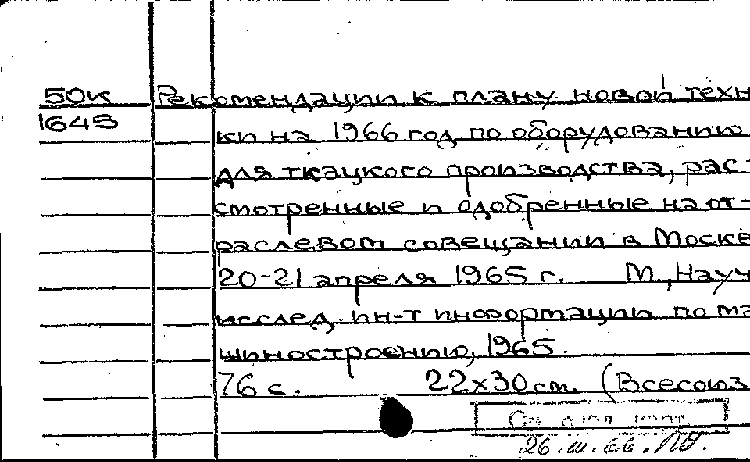 50к Рекомендации к плану новой техн
1645 ки на 1966 год по оборудованию
для ткацкого производства, рас-
смотренные и одобренные на от-
раслевом совещании в Москве
20-21 апреля 1965 г. М., Науч
исслед. ин-т информации по ма
шиностроению, 1965.
76 с. 22х30 см. (Всесоюз
См. доп. карт.
26.III.66.